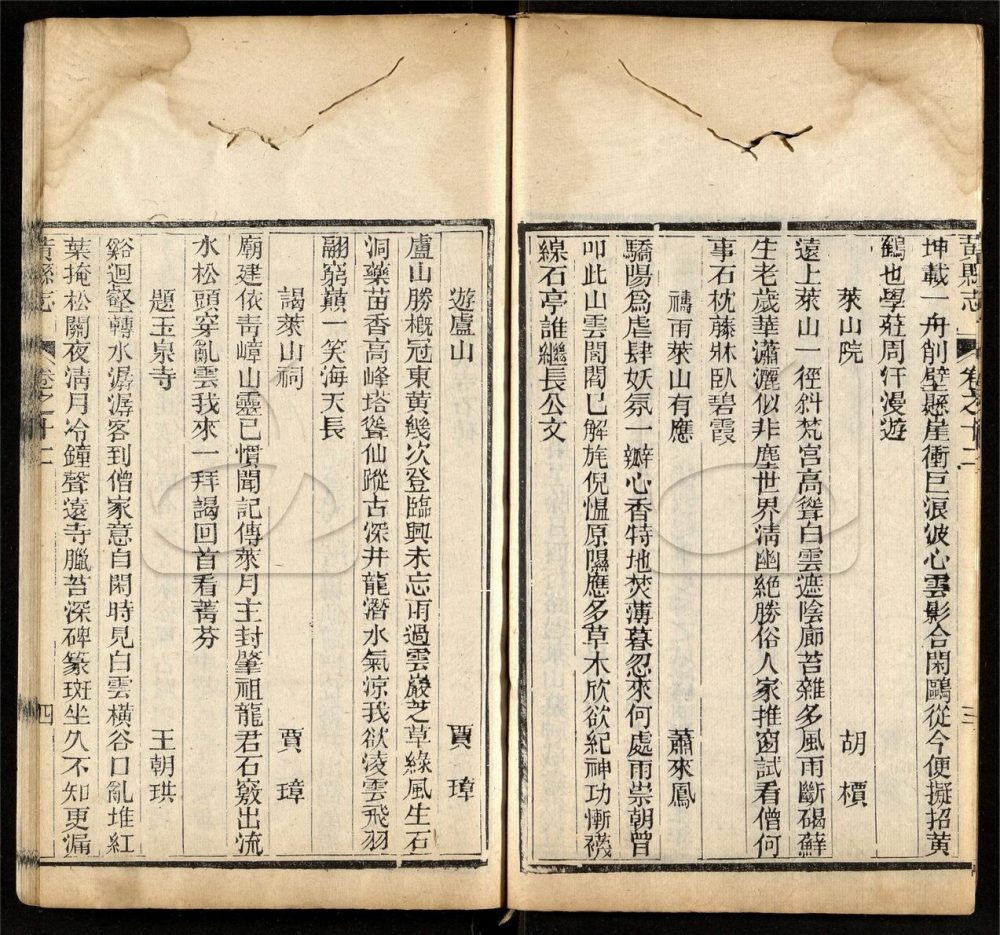 黃縣志 卷之十二 三
坤載一舟削壁懸崖衝巨浪波心雲影合閑鷗從今便擬招黃
鶴也學莊周汗漫遊
萊山院 胡槚
遠上萊山一徑斜梵宮高聳白雲遮陰廊苔雜多風雨斷碣蘚
生老歲華瀟灑似非塵世界淸幽絶勝俗人家推窗試看僧何
事石枕藤牀臥碧霞
禱雨萊山有應 蕭來鳳
驕陽爲虐肆妖氛一瓣心香特地焚薄暮忽來何處雨崇朝曾
叩此山雲閭閻已解旄倪慍原隰應多草木欣欲紀神功慚襪
線石亭誰繼長公文
遊盧山 賈璋
盧山勝槪冠東黃幾次登臨興未忘雨過雲巖芝草綠風生石
洞藥苗香高峰塔聳仙蹤古深井龍潛水氣涼我欲淩雲飛羽
翮窮巔一笑海天長
謁萊山祠 賈璋
廟建依靑嶂山靈已慣聞記傳萊月主封肇祖龍君石竅出流
水松頭穿亂雲我來一拜謁回首看蓍芬
題玉泉寺 王朝珙
谿迴壑轉水潺潺客到僧家意自閑時見白雲橫谷口亂堆紅
葉掩松關夜淸月冷鐘聲遠寺臘苔深碑篆斑坐久不知更漏
黃縣志 卷之十二 四